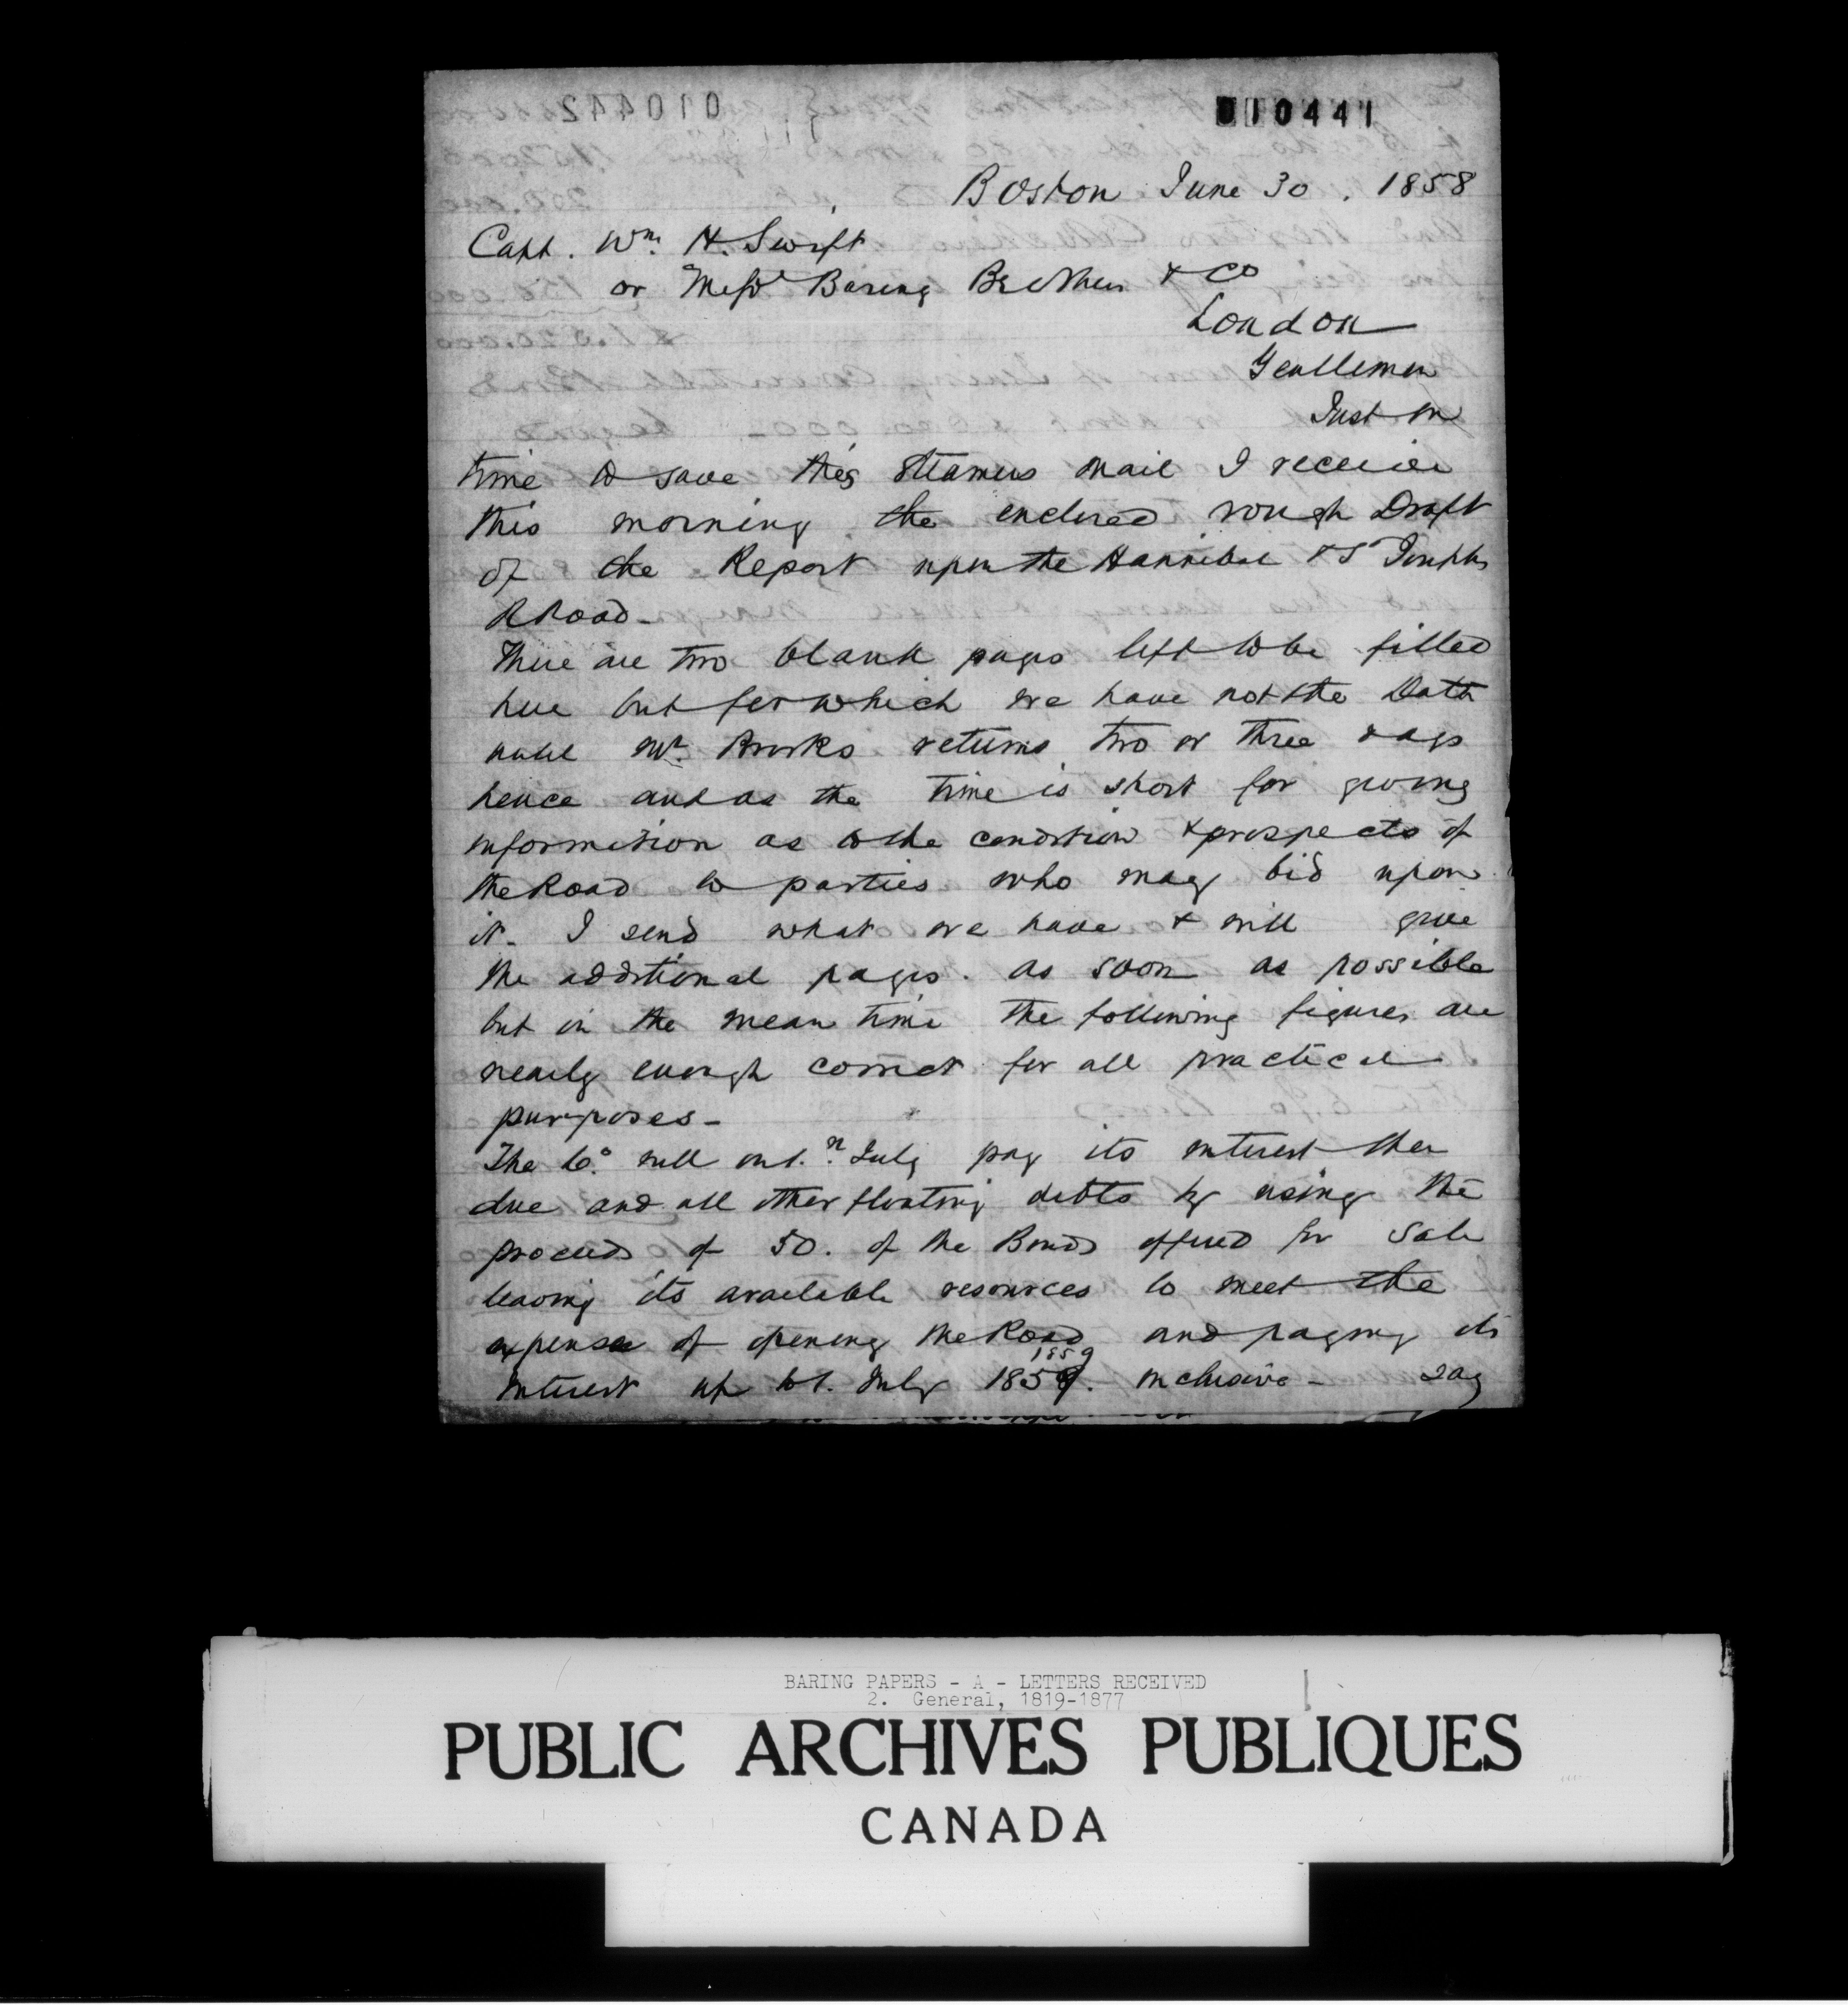 010441
Boston June 30. 1858
Capt. Wm. H. Swift
or Messrs Baring Brothers & Co
London
Gentlemen
Just in
time to save this steamers mail I receive
this morning the enclosed rough Draft
of the Report upon the Hannibal & St Josephs
RRoad-
There are two blank pages left to be filled
here but for which we have not the Data
until Mr. Brooks returns two or three days
hence and as the time is short for giving
information as to the condition & prospects of
the Road to parties who may bid upon
it. I send what we have & will give
the additional pages. as soon as possible
but in the mean time the following figures are
nearly enough correct for all practical
purposes-
The Co. will on 1. July pay its interest then
due and all other floating debts by using the
proceeds of 50. of the Bonds offered for Sale
leaving its available resources to meet the
expenses of opening the Road and paying its
1859
interest up to 1. July 1859. inclusive - say
BARING PAPERS - A - LETTERS RECEIVED
2. General, 1819-1877
PUBLIC ARCHIVES PUBLIQUES
CANADA